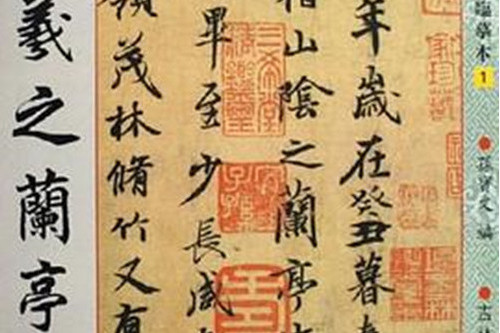 臨摹本1
孫寶文 編
年歲在癸丑暮
稽山陰之蘭亭
畢至少長咸
領茂林脩竹又有
羲之蘭亭
三希堂精鑑璽
宜子孫